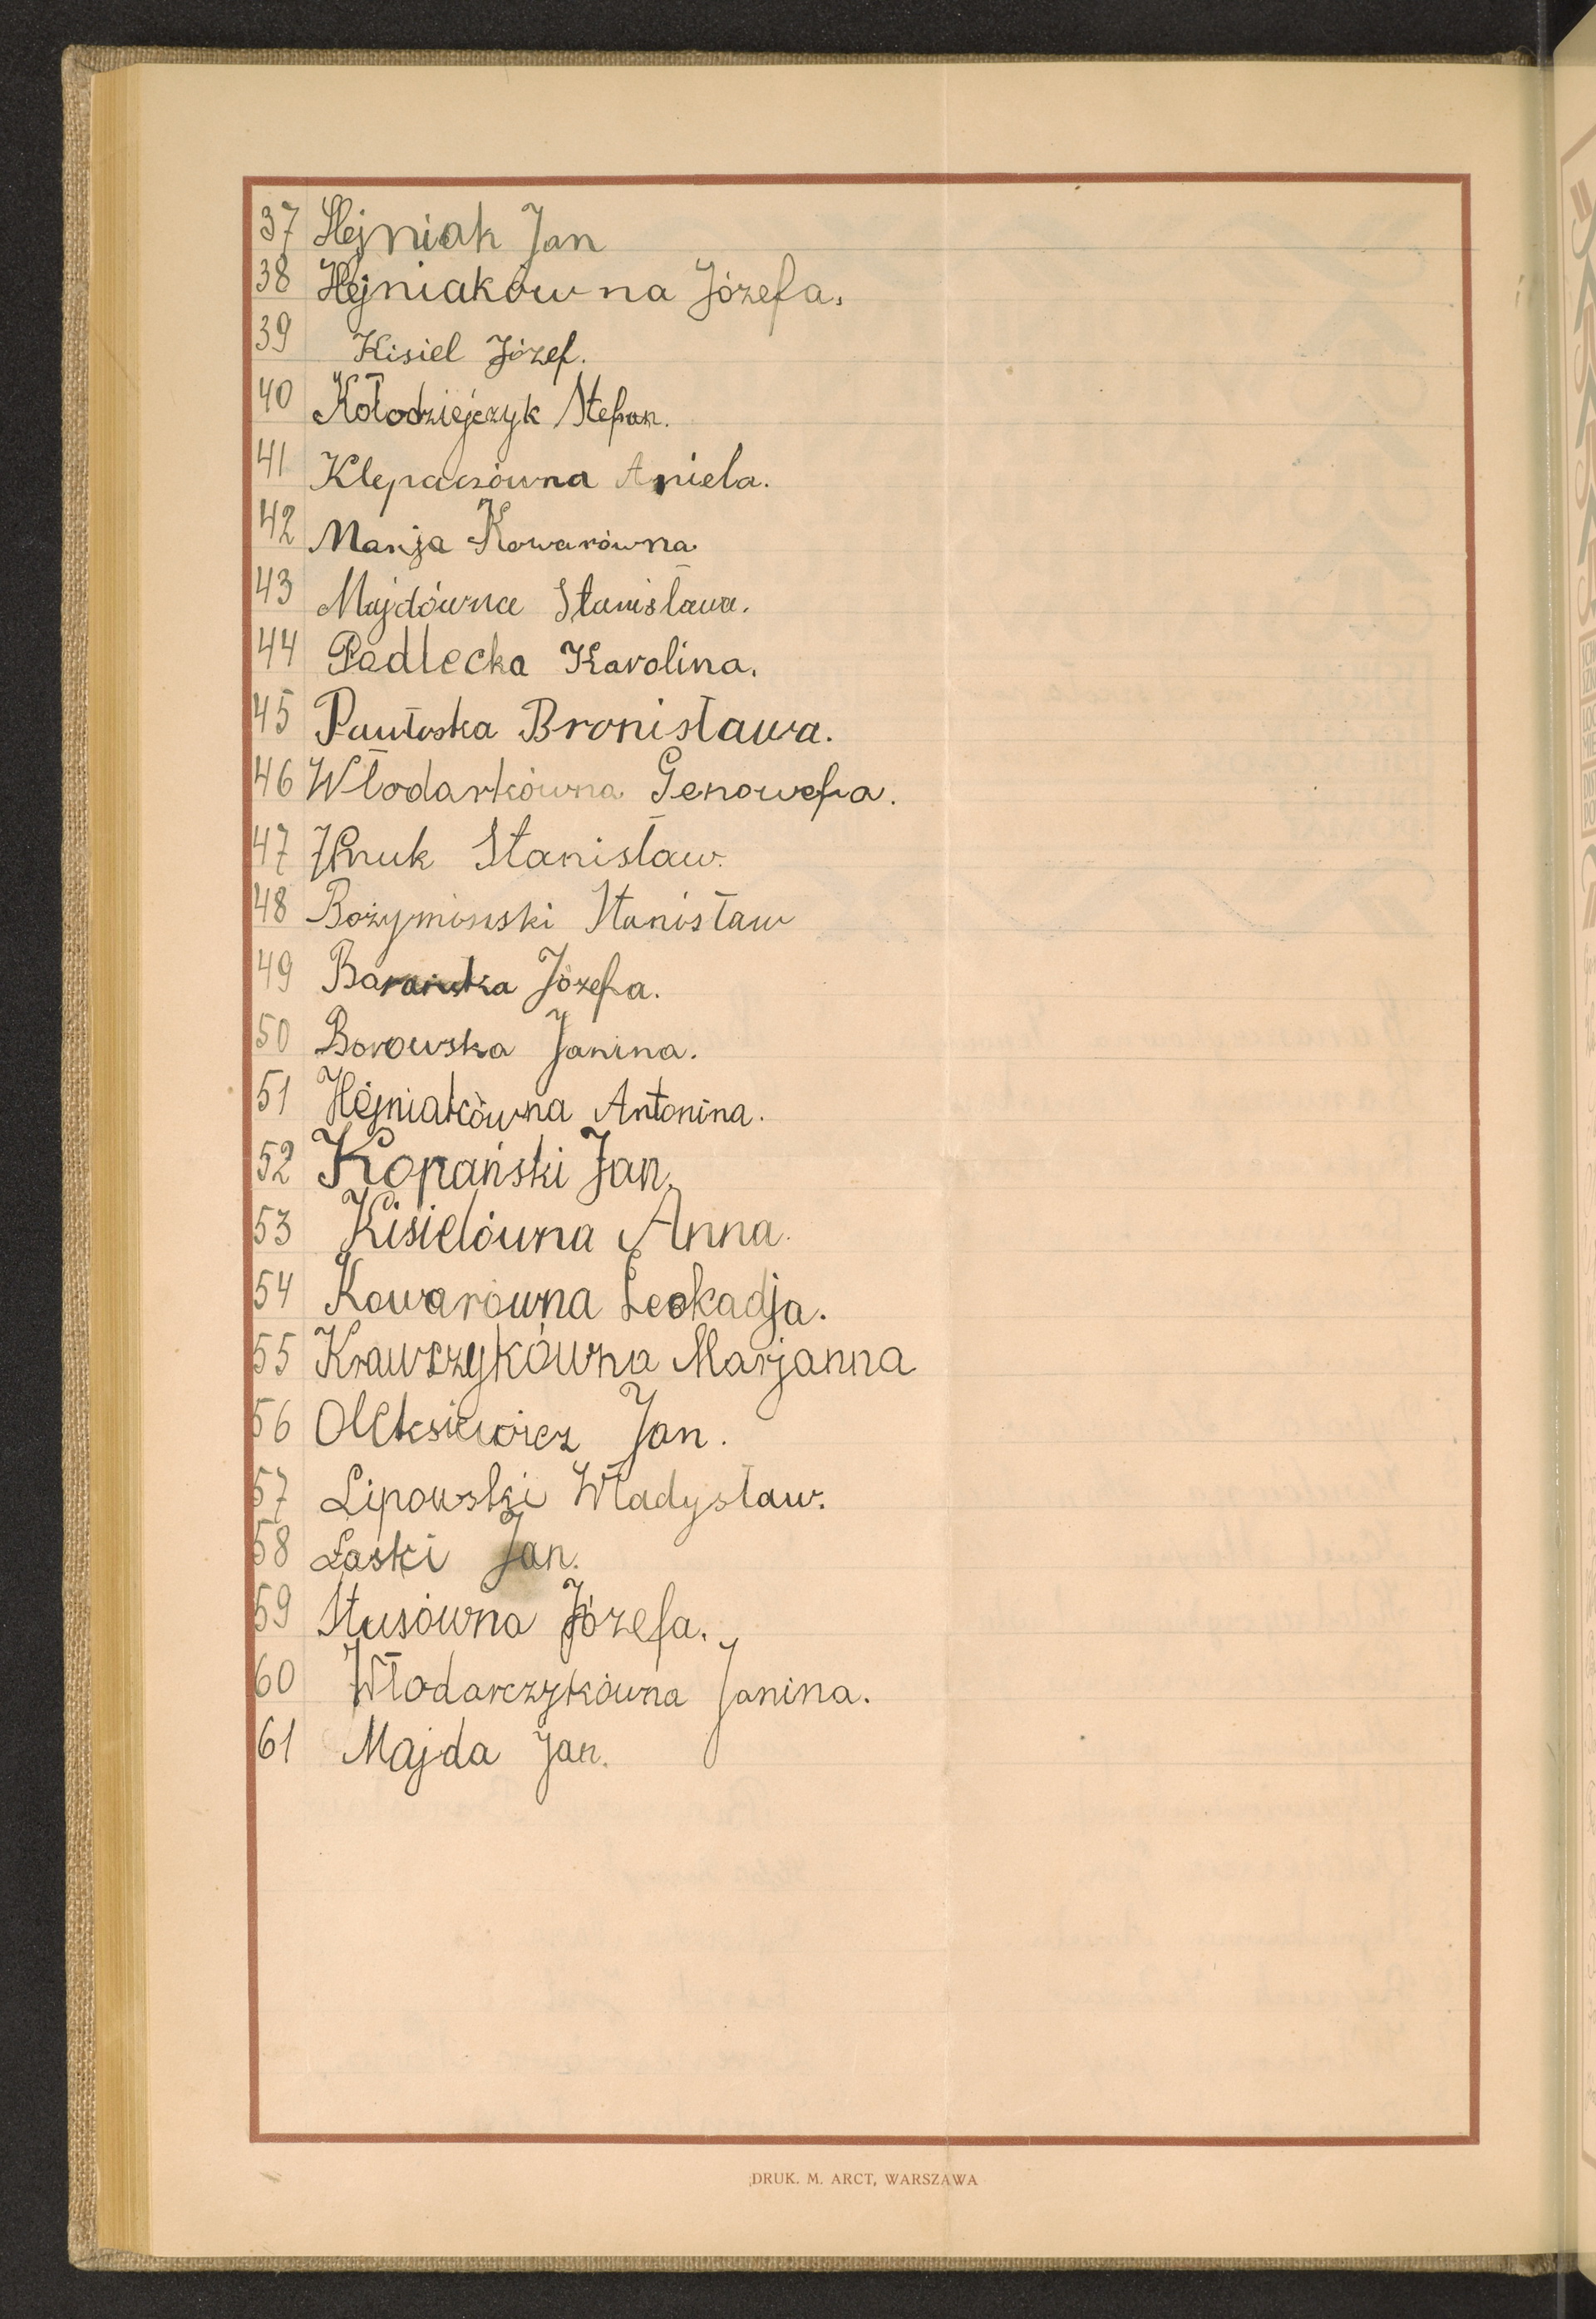 37 Hejniak Jan
38 Hejniakówna Józefa.
39 Kisiel Józef.
40 Kołodziejczyk Stefan.
41 Klepaczówna Aniela.
42 Marija Kowarówna
43 Majdówna Stanisława.
44 Padlecka Karolina.
45 Pawłoska Bronisława.
46 Włodarkówna Genowefa.
47 Stanisław.
48 Bożymowski Stanisław
49 Józefa.
50 Borowska Janina.
51 Hejniakówna Antonina.
52 Kopański Jan.
53 Kisielówna Anna.
54 Kowarówna Leokadja.
55 Krawczykówna Marjanna
56 Oleksiewicz Jan.
57 Lipowski Władysław.
58 Laski Jan.
59 Stusówna Józefa.
60 Włodarczykówna Janina.
61 Majda Jan.
DRUK. M. ARCT, WARSZAWA